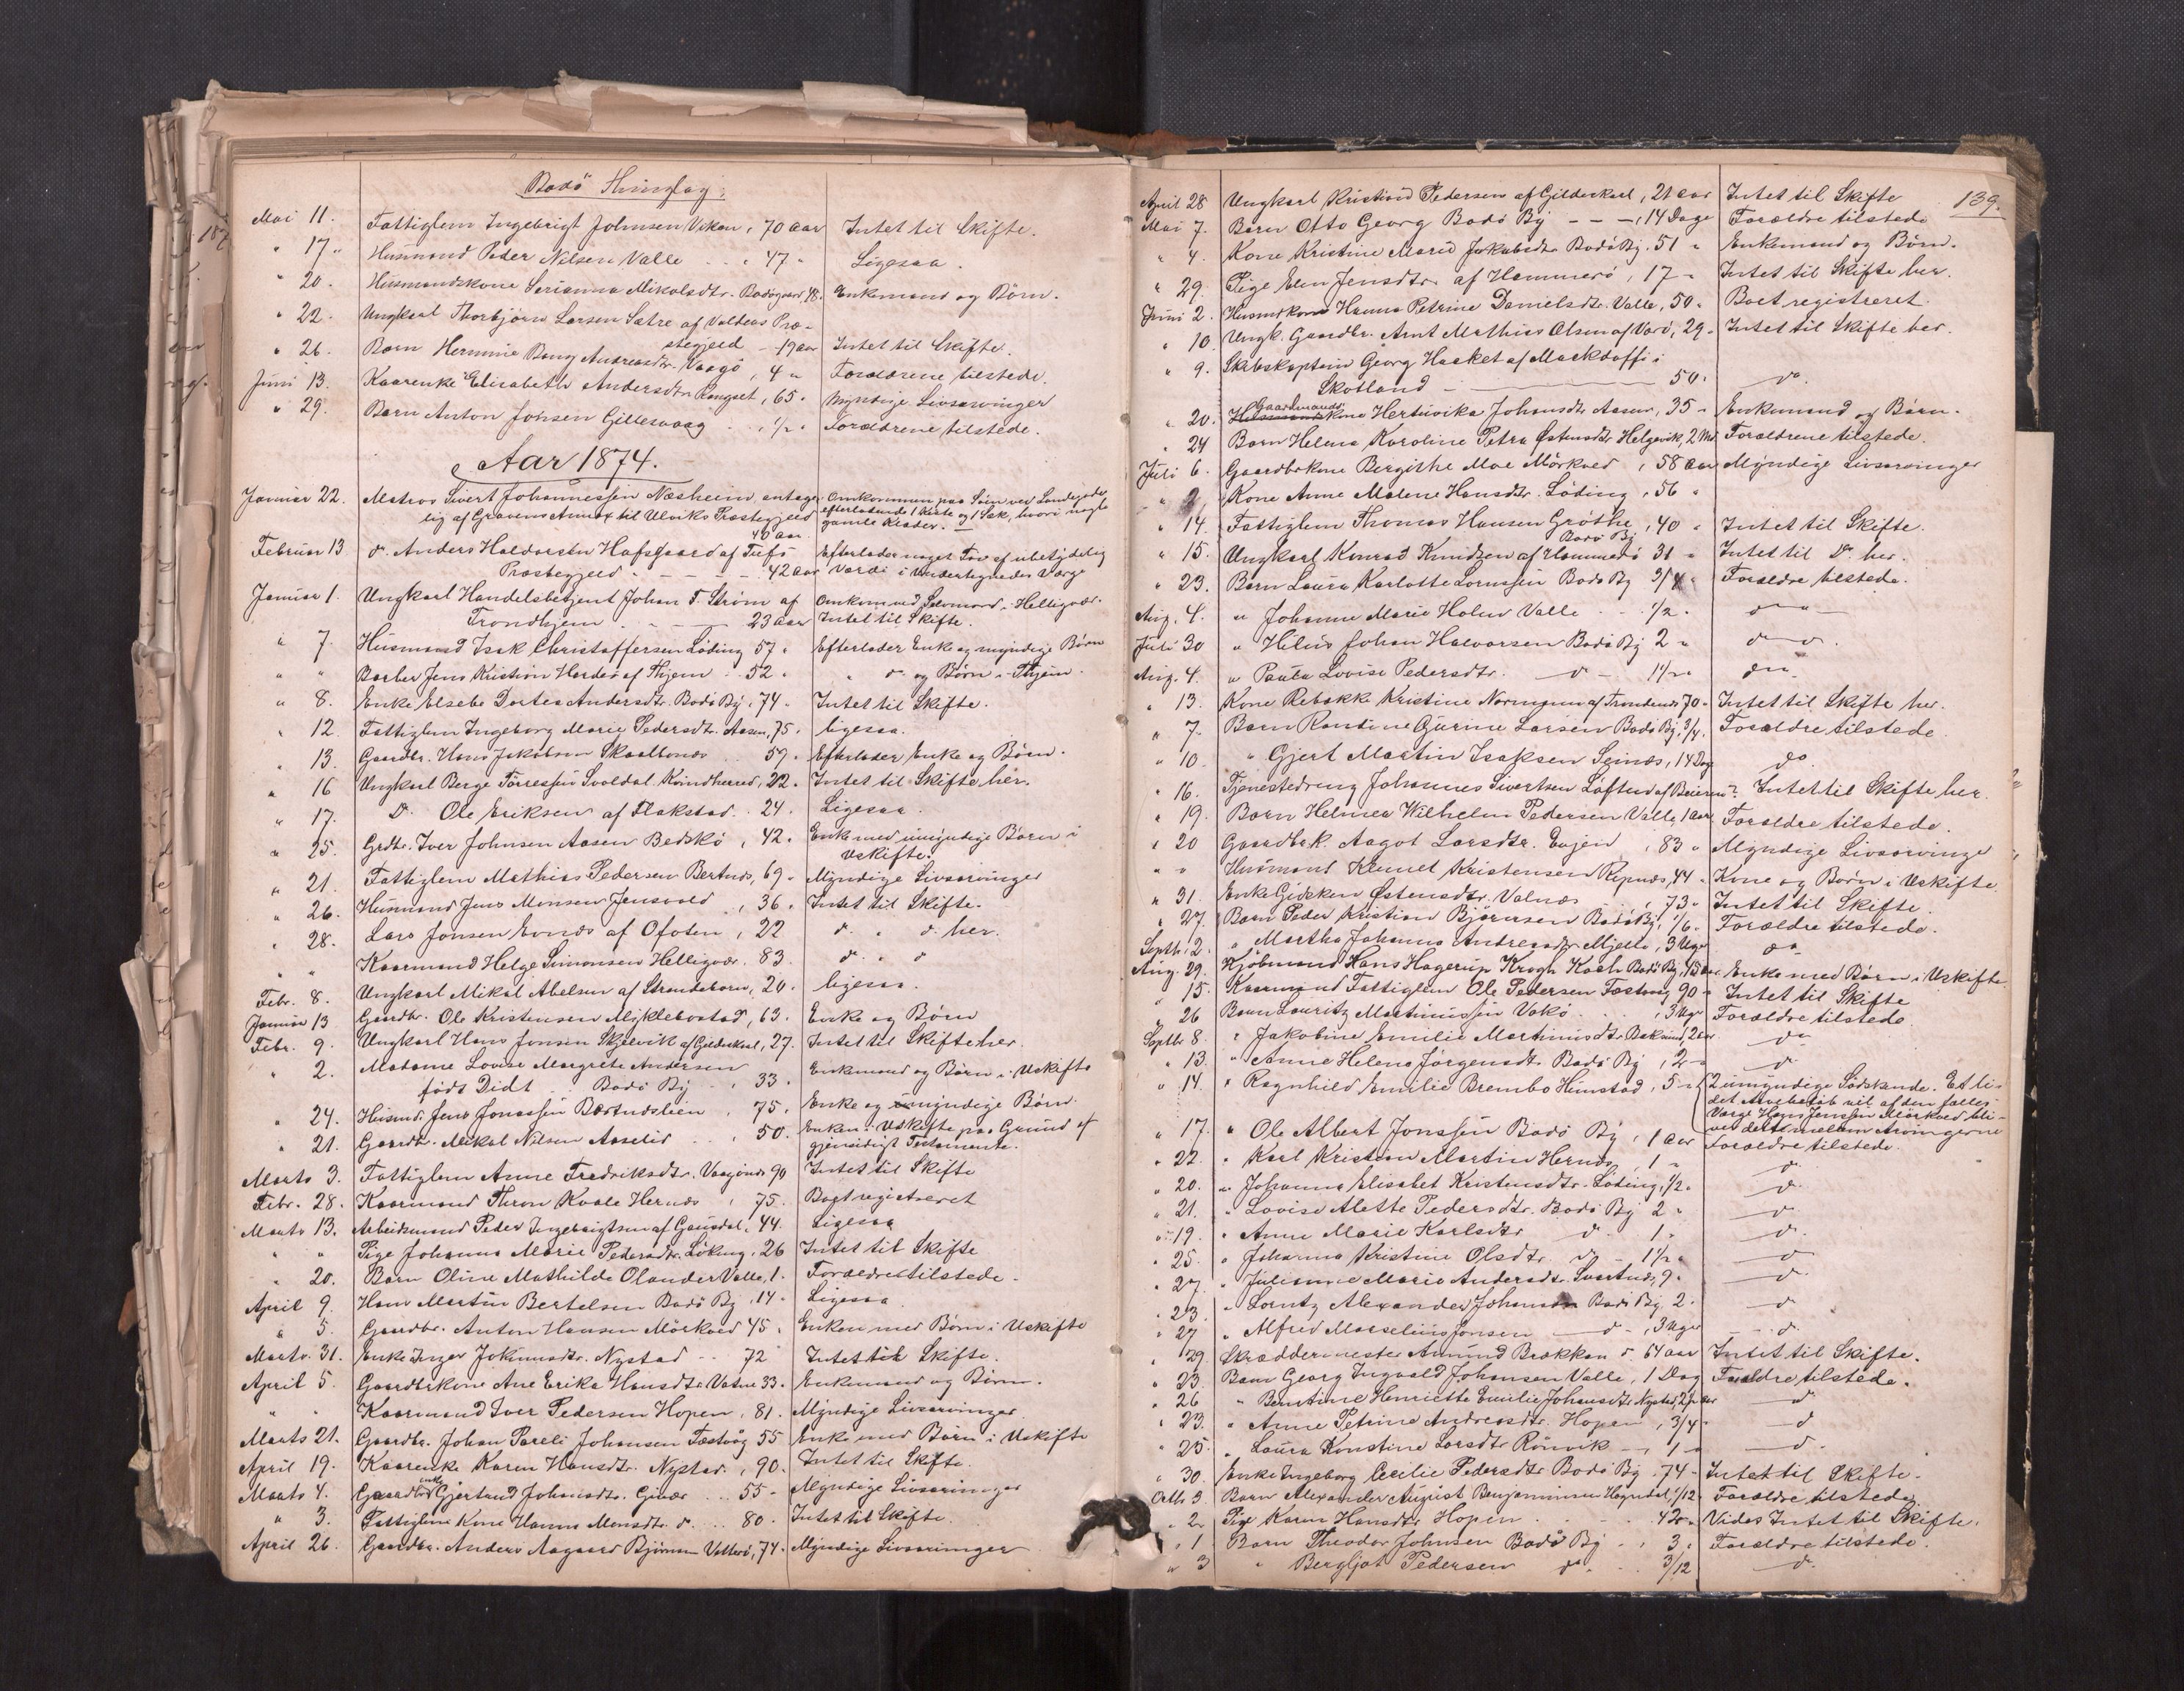 Bodö Thinglag.
Mai 11. Fattiglem Ingebrigt Johnsen Viken, 70 Aar Intet til Skifte.
" 17. Husmand Peder Nilsen Valle . . " 47 " Ligesaa.
" 20. Husmandskone Serianna Nikolsdtr. Bodögaard, 48. Enkemand og Börn.
" 22. Ungkarl Thorbjörn Larsen Sætre af Voldens Præ-
stegjeld - 19 Aar Intet til Skifte.
" 26. Barn Hermine Bang Andreasdtr. Vaagö, 4 " Forældrene tilstede.
Juni 13. Kaarenke Elisabeth Andersdtr. Rangset, 65. Myndige Livsarvinger
" 29. Barn Anton Johnsen Gillesvaag . . , ½ . Forældrene tilstede.
Aar 1874.
Januar 22. Matros Sivert Johannessen Næsheim, antage- Omkommen paa Söen ved Landegode
lig af Gravens Annex til Ulviks Præstegjeld efterladende 1 Kiste og 1 Sæk, hvori nogle
40 Aar. gamle Klæder.
Februar 13 do. Anders Haldorsen Hafsgaard af Tufs Efterlader noget Töi af ubetydelig
Præstegjeld - - - - 42 Aar Værdi i Undertegnedes Værge
Januar 1. Ungkarl Handelsbetjent Johan F. Ström af Omkom ved Selvmord i Helligvær.
Trondhjem - - - 23 Aar Intet til Skifte.
" 7. Husmand Isak Christoffersen Löding 57 " Efterlader Enke og myndige Börn
" " Barber Jens Kristian Hordes af Thjem . 52. " do og Börn i Thjem.
" 8. Enke Elsebe Dortea Andersdtr. Bodö By, 74. Intet til Skifte.
" 12. Fattiglem Ingeborg Marie Pedersdtr. Aasen, 75. ligesaa.
" 13. Gaardbr. Hans Jakobsen Skaalbones . . 57. Efterlader Enke og Börn.
" 16 Ungkarl Berge Törresen Svoldal. Kvindherred, 22. Intet til Skifte her.
" 17. Do. Ole Eriksen af Flakstad . . 24. Ligesaa.
" 25. Grdbr. Iver Johnsen Aasen Bedskö, 42. Enke med umyndige Börn i
Uskifte.
" 21. Fattiglem Mathias Pedersen Bertnes, 69. Myndige Livsarvinger
" 26. Husmand Jens Monsen Jensvold , 36. Intet til Skifte.
" 28. Lars Jonsen Evnes af Ofoten , 22 do. " do. her.
" " Kaarmand Helge Simonsen Helligvær. 83. do. " do
Febr. 8. Ungkarl Mikal Abelsen af Strandeborn, 20. ligesaa.
Januar 13 Gaardbr. Ole Kristensen Myklebostad, 63. Enke og Börn
Febr. 9. Ungkarl Hans Jonsen Skjelvik af Gildeskaal, 27. Intet til Skifte her.
" 2. Madame Lovise Margrete Andersen
födt Didt . . Bodö By , 33. Enkemand og Börn i Uskifte
" 24. Husmd. Jens Jonassen Bertneslien , 75. Enke og myndige Börn.
" 21. Gaardbr. Mikal Nilsen Asselid . . , 50. Enken i Uskifte paa Grund af
gjensidigt Testamente.
Marts 3. Fattiglem Anne Fredriksdtr. Vaagönes 90 Intet til Skifte
Febr. 28. Kaarmand Thron Kvale Hernes , 75. Boet registreret
Marts 13. Arbeidsmand Peder Ingebrigtsen af Gausdal, 44. Ligesaa
" " Pige Johanna Marie Pedersdtr. Löking, 26 Intet til Skifte
" 20. Barn Oline Mathilde Olander Valle, 1. Forældre tilstede.
April 9. Hans Martin Bertelsen Bodö By , 14. Ligesaa
" 5. Gaardbr. Anton Hansen Mörkved 45 . Enken med Börn i Uskifte
Marts 31. Enke Inger Johansdtr. Nystad . . 72 Intet til Skifte.
April 5. Gaardbrkone Ane Erika Hansdtr. Vatne 33. Enkemand og Börn.
" " Kaarmand Iver Pedersen Hopen, 81. Myndige Livsarvinger
Marts 21. Gaardbr. Johan Pareli Johansen Fæstvåg 55 Enke med Börn i Uskifte
April 19. Kaarenke Karen Hansdtr. Nystad. , 90. Intet til Skifte.
Marts 4. Gaardbr enke Gjertrud Johansdtr. Givær . . . 55. Myndige Livsarvinger
" 3. Fattiglem Kone Hanna Monsdtr. do. . . . 80. Intet til Skifte.
April 26. Gaardbr. Anders Aagaard Björnsen Valleröi, 74. Myndige Livsarvinger
139.
April 28 Ungkarl Kristian Pedersen af Gildeskaal, 21 Aar Intet til Skifte
Mai 7. Barn Otto Georg Bodö By - - -, 14 Dage Forældre tilstede
" 4. Kone Kristine Marie Jakobsdtr. Bodö By. 51 " Enkemand og Börn.
" 29. Pige Elen Jensdtr. af Hammerö, 17 - Intet til Skifte her.
Juni 2. Husmdkone Hanna Petrine Danielsdtr. Valle, 50. Boet registreret.
" 10. Ungk. Gaardbr. Arnt Mathias Olsen af Værö, 29. Intet til Skifte her.
" 9. Skibskaptein Georg Hasket af Mackdoffi i
Skotland - - - 50. do.
" 20. Gaardmands Kone Hertuvika Johansdtr. Aasen, 35 - Enkemand og Börn.
" 24 Barn Helena Karoline Petra Østensdtr. Helgevik, 2 Md. Forældrene tilstede.
Juli 6. Gaardbrkone Bergithe Moe Mörkved , 58 Aar Myndige Livsarvinger
" 2. Kone Anne Malene Hansdtr. Löding , 56 "
" 14. Fattiglem Thomas Hansen Gröthe , 40 " Intet til Skifte.
Bodö By
" 15. Ungkarl Konrad Knudsen af Hammerö 31 - Intet til Do. her.
" 23. Barn Laura Karlotte Lorensen Bodö By 3/4 " Forældre tilstede.
Aug. 4. " Johanna Marie Holm Valle - - ½ . do
Juli 30 " Hilus Johan Halvorsen Bodö By 2 " do
Aug. 4. " Paula Lovise Pedersdtr. - do - 1½ . do
" 13. Kone Rebekke Kristine Normann af Trondenes 70. Intet til Skifte her.
" 7. Barn Rantine Gurine Larsen Bodö By. 3/4. Forældre tilstede.
" 10. " Gjert Martin Isaksen Seines, 14 Dage do
" 16. Tjenestedreng Johannes Sivertsen Löften af Beieren ? Intet til Skifte her.
" 19. Barn Helmer Wilhelm Pedersen Valle, 1 Aar Forældre tilstede.
" 20 Gaardbrk. Aagot Larsdtr. Engen , 83 " Myndige Livsarvinge
" " Husmand Klemet Kristensen Ripnes, 44 . Kone og Börn i Uskifte.
" 31. Enke Gidsken Østensdtr. Valnes , 73. Intet til Skifte.
" 27. Barn Peder Kristian Björnsen Bodö By, 1/6. Forældre tilstede.
Septb. 2. " Martha Johanna Andreasdtr. Mjelle, 3 Uger do
Aug. 29. Kjöbmand Hans Hagerup Krogh Koch Bodö By, Enke med Börn i Uskifte.
" 15. Kaarmand Fattiglem Ole Pedersen Fæstvaag 90 - Intet til Skifte
26 Barn Lauritz Martinussen Vokö . . , 3 Uger Forældre tilstede
Septbr 8. " Jakobine Emilie Martinusdtr. Baksund, 2 Aar do
" 13. " Anne Helene Jörgensdtr. Bodö By , 2 - do
" 14. " Ragnhild Emilie Brembo Hunstad, 5 - 2 umyndige Södskende. Et li-
det Arvebelöb vil af den fælles
Værge Hans Jenssen Mörkved bli-
ve delt mellem Arvingerne
" 17. " Ole Albert Jonssen Bodö By , 1 Aar Forældre tilstede.
" 22. " Karl Kristian Martin Hernes , 1 " do
" 20. " Johanna Elisabet Kristensdtr. Löding, ½. do
" 21. " Lovise Alette Pedersdtr. Bodö By 2 " do
" 19. " Anne Marie Karlsdtr. do . 1 . do
" 25. " Johanna Kristine Olsdtr. do - 1½ . do
" 27. " Julianne Marie Andersdtr. Svartnes, 9. do
" 23. " Lorntz Alexander Johansen Bodö By. 2. do
" 27 " Alfred Marselius Jonsen - do -, 3 Uger do.
" 29. Skræddermester Amund Brækken do. 64 Aar Intet til Skifte.
" 23. Barn Georg Ingvald Johansen Valle, 1 Dag Forældre tilstede.
" 26 " Berntine Henriette Emilie Johansdtr. Nystad, 2½ Aar do
" 23. " Anne Petrine Andreasdtr. Hopen , 3/4 do
" 25. " Laura Konstine Larsdtr. Rönvik - , 1 - do.
" 30. Enke Ingeborg Cecilie Pedersdtr. Bodö By . 74 - Intet til Skifte.
Octb. 3. Barn Alexander August Benjaminsen Högnedal 1/12. Forældre tilstede
" 2. Pige Karen Hansdtr. Hopen . . . 42. Vides Intet til Skifte.
" 1 Barn Theodor Johnsen Bodö By - , 3 . Forældre tilstede.
" 3 " Bergljot Pedersen do. - . . 3/12 do.